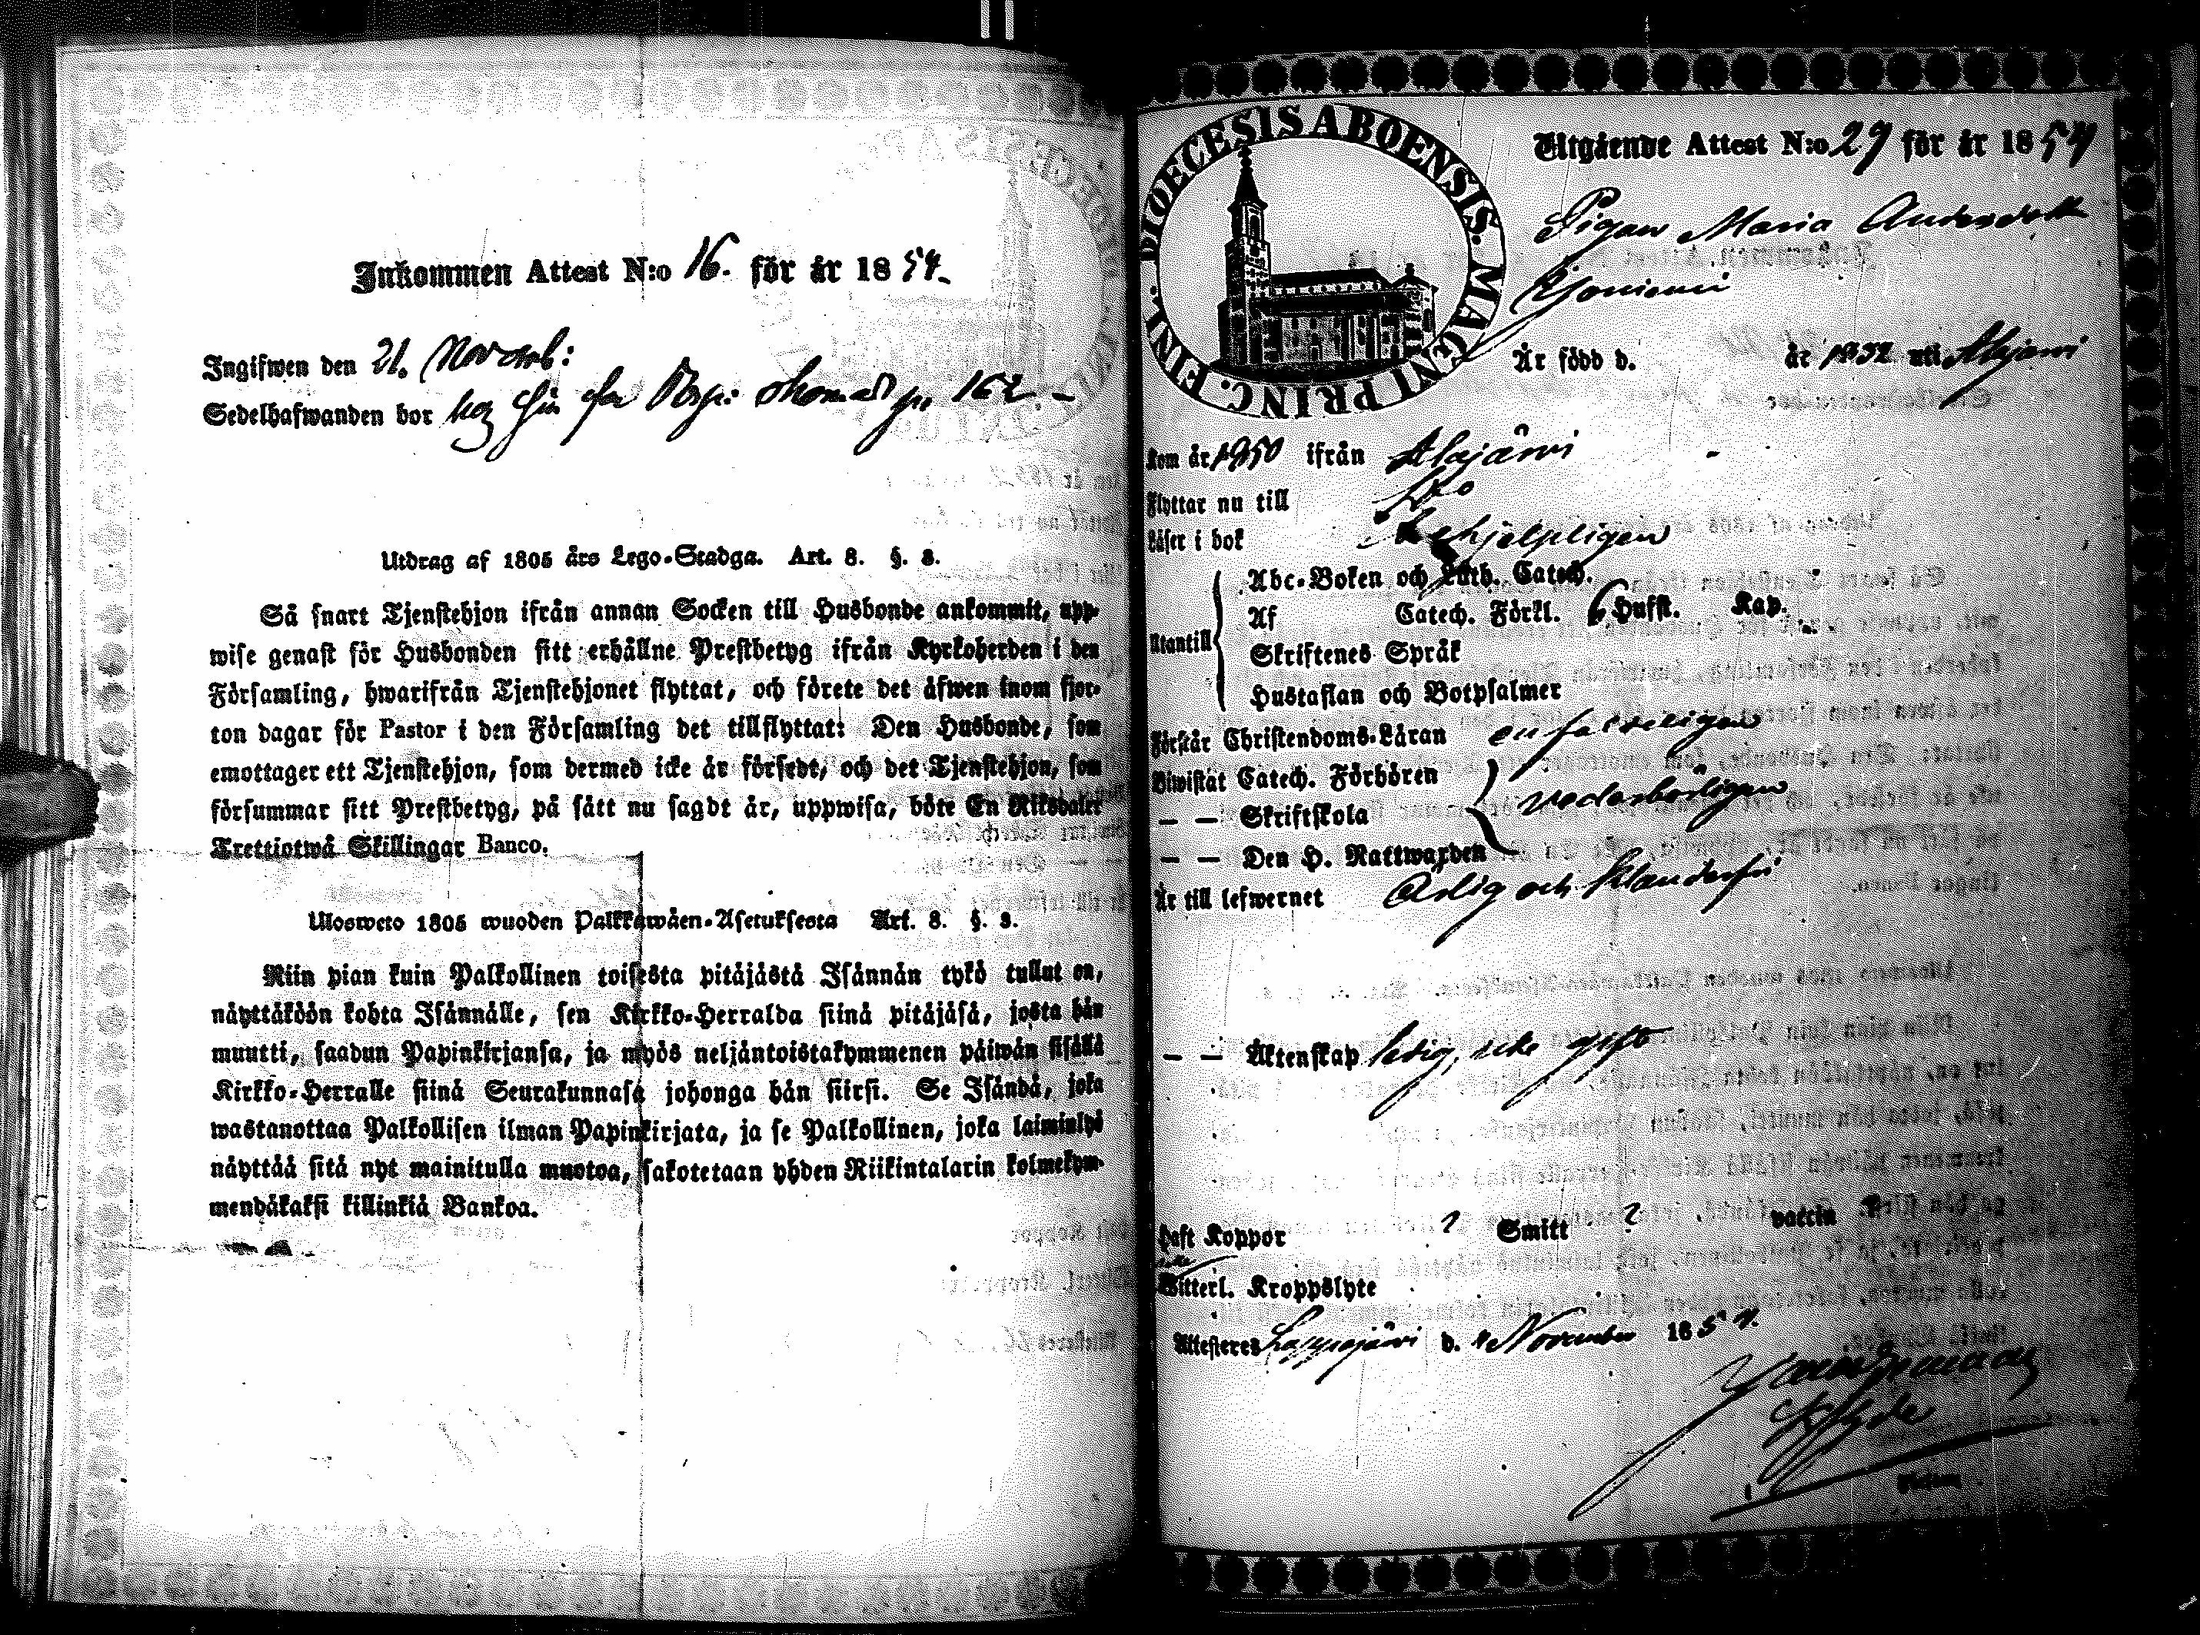 Inkommen Attest N:o 16. för år 1854.
Ingifwen den 21. Novemb:
Sedelhafwanden bor hos sin far
162
Utdrag af 1805 års Lego-Stadga. Art. 8. §. 3.
Så snart Tjenstehjon ifrån annan Socken till Husbonde ankommit, upp-
wise genast för Husbonden sitt erhållne Prestbetyg ifrån Kyrkoherden i den
Församling, hwarifrån Tjenstehjonet flyttat, och förete det äfwen inom fjor-
ton dagar för Pastor i den Församling det tillflyttat: Den Husbonde, som
emottager ett Tjenstehjon, som dermed icke är försedt, och det Tjenstehjon, som
försummar sitt Prestbetyg, på sätt nu sagdt är, uppwisa, böte En Riksdaler
Trettiotwå Skillingar Banco.
Ulosweto 1805 wuoden Palkkawäen-Asetuksesta Art. 8. §. 3.
Niin pian kuin Palkollinen toisesta pitäjästä Isännän tykö tullut on,
näyttäköön kohta Isännälle, sen Kirkko-Herralda siinä pitäjäsä, josta hän
muutti, saadun Papinkirjansa, ja myös neljäntoistakymmenen päiwän sisällä
Kirkko-Herralle siinä Seurakunnasa johonga hän siirsi. Se Isändä, joka
wastanottaa Palkollisen ilman Papinkirjata, ja se Palkollinen, joka laiminlyö
näyttää sitä nyt mainitulla muotoa, sakotetaan yhden Riikintalarin kolmekym-
mendäkaksi killinkiä Bankoa.
DIOECESIS ABOENSIS. MAGNI PRINC. FINL.
Utgående Attest N:o 29 för år 1854
Pigan Maria Andersdr
Är född d. år 1832 uti Alajärvi
Kom år 1850 ifrån Alajärvi
Flyttar nu till
Läser i bok behjelpligen
Utantill
Abc-Boken och Luth. Catech.
Af Catech. Förkl. 6 Hufst. Kap.
Skriftenes Språk
Hustaflan och Botpsalmer
Förstår Christendoms-Läran enfaldeligen
Biwistat Catech. Förhören
— — Skriftskola vederbörligen
— — Den H. Nattwarden
Är till lefwernet Ärlig och klanderfri
— — Äktenskap ledig, icke gift
Haft Koppor ? Smitt ? vaccin
Witterl. Kroppslyte
Attesteras Lappajärvi d. 4 November 1854.